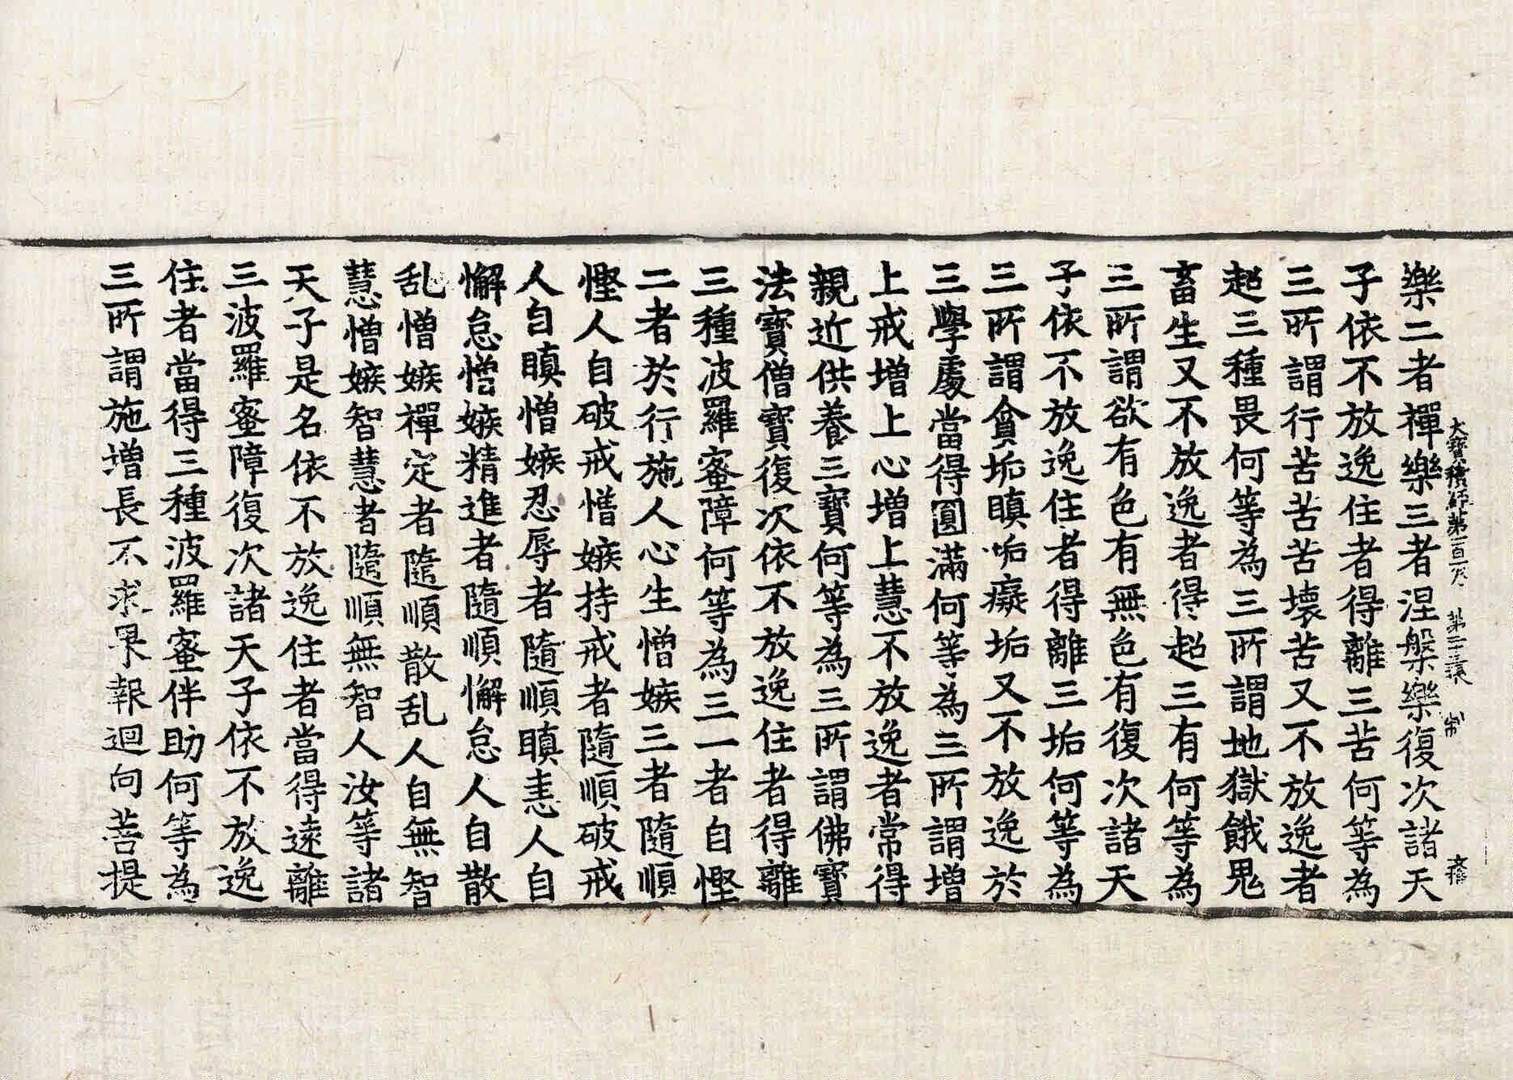 大寶積經第一百一
樂二者禪樂三者涅槃樂復次諸天
子依不放逸住者得離三苦何等為
三所謂行苦苦苦壞苦又不放逸者
超三種畏何等為三所謂地獄餓鬼
畜生又不放逸者得超三有何等為
三所謂欲有色有無色有復次諸天
子依不放逸住者得離三垢何等為
三所謂貪垢瞋垢癡垢又不放逸於
三學處當得圓滿何等為三所謂增
上戒增上心增上慧不放逸者常得
親近供養三寶何等為三所謂佛寶
法寶僧寶復次依不放逸住者得離
三種波羅蜜障何等為三一者自慳
二者於行施人心生憎嫉三者隨順
慳人自破戒憎嫉持戒者隨順破戒
人自瞋憎嫉忍辱者隨順瞋恚人自
懈怠憎嫉精進者隨順懈怠人自散
乱憎嫉禪定者隨順散乱人自無智
慧憎嫉智慧者隨順無智人汝等諸
天子是名依不放逸住者當得遠離
三波羅蜜障復次諸天子依不放逸
住者當得三種波羅蜜伴助何等為
三所謂施增長不求果報迴向菩提